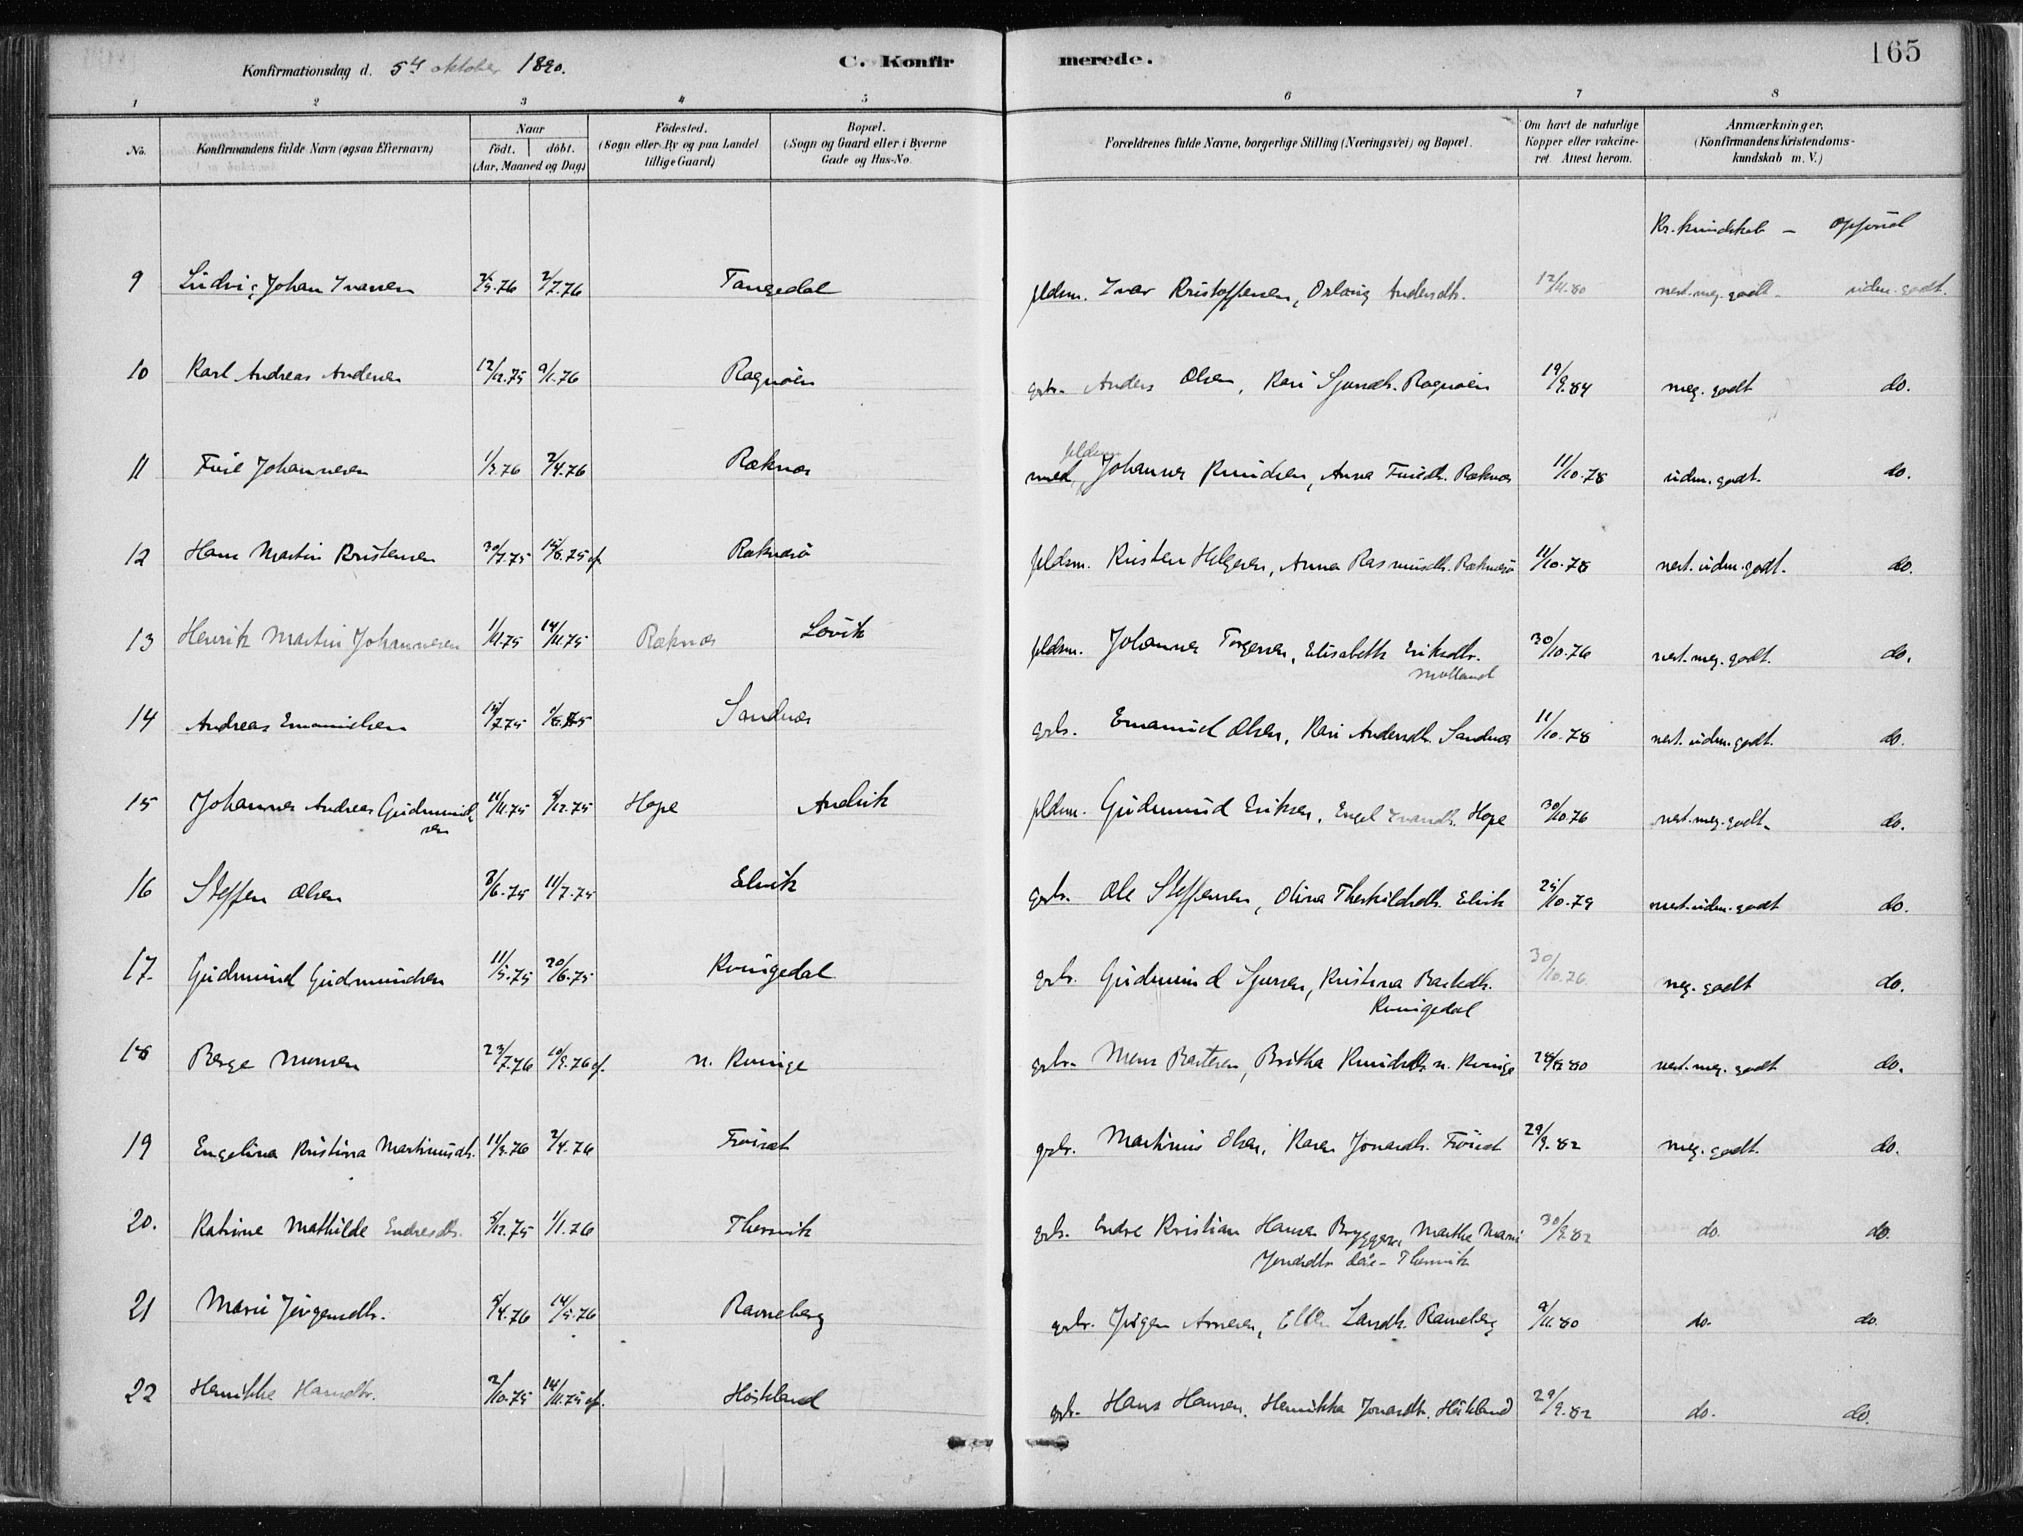 Konfirmationsdag d. 5te oktober 1890.
C. Konfir merede. 165
1 2 3 4 5 6 7 8
No. Konfirmandens fulde Navn (ogsaa Efternavn) Naar födt. döbt. (Aar, Maaned og Dag) Födested. (Sogn eller By og paa Landet tillige Gaard) Bopæl. (Sogn og Gaard eller i Byerne Gade og Hus-No. Forældrenes fulde Navne, borgerlige Stilling (Næringsvei) og Bopæl. Om havt de naturlige Kopper eller vakcineret. Attest herom. Anmærkninger. (Konfirmandens Kristendomskundskab m. V.)
Kr. kundskab – Opførsel
9 Ludvig Johan Ivarsen 2/7.76 Tangedal pldsm. Ivar Kristoffersen, Oslaug Andersdtr. 12/11.80 nest. meg. godt – udm. godt.
10 Karl Andreas Andersen 12/12.75 9/1.76 Ragnøen gbr. Anders Olsen, Kari Sjursdtr. Ragnøen 19/9.84 meg. godt do.
11 Johannesen 1/3.76 2/4.76 Reknes pldsm. Johannes Knudsen, Anna Reknes 11/10.78 udm. godt. do.
12 Hans Martin Kristensen 30/7.75 15/8.75 Reknesø pldsm. Kristen Helgesen, Anna Rasmusdtr. Reknesø 11/10.78 nest. udm. godt. do.
13 Henrik Martin Johannesen 1/11.75 14/11.75 Reknes Lovik pldsm. Johannes Torgersen, Elisabeth Eriksdtr. Molland 30/10.76 nest. meg. godt. do.
14 Andreas Emanuelsen 1/8.75 Sandnes gbr. Emanuel Olsen, Kari Andersdtr. Sandnes 11/10.78 nest. udm. godt. do.
15 Johannes Andreas Gudmundsen 11/11.75 5/12.75 Hope Andvik pldsm. Gudmund Eriksen, Engel Ivarsdtr. Hope 30/10.76 nest. meg. godt. do.
16 Steffen Olsen 3/6.75 11/7.75 Elvik gbr. Ole Steffensen, Olina Therkildsdtr. Elvik 25/10.79 nest. udm. godt do.
17 Gudmund Gudmundsen 11/5.75 20/6.75 Kvingedal gbr. Gudmund Sjursen, Kristina Baardsdtr. Kvingedal 30/10.76 meg. godt do.
18 Berge Monsen 23/7.76 10/9.76 n. Kvinge gbr. Mons Bertesen, Britha Knudsdtr. n. Kvinge nest. meg. godt do.
19 Engelina Kristina Martinusdtr. 11/3.76 2/4.76 Frøiset gbr. Martinus Olsen, Karen Jonasdtr. Frøiset 29/9.82 meg. godt. do.
20. Katrine Mathilde Endresdtr. 5/12.75 1/1.76 Thersvik gbr. Endre Kristian Hansen Brygger, Marthe Marie Jonasdtr. – Thersvik 30/9.82 do. do.
21 Marie Jørgensdtr. 5/4.76 14/5.76 Ravneberg gbr. Jørgen Arnesen, Ellen Larsdtr. Ravneberg 9/11.80 do. do.
22 Henrikke Hansdtr. 2/10.75 14/11.75 Høskeland gbr. Hans Hansen, Henrikka Jonasdtr. Høskeland 29/9.82 do. do.